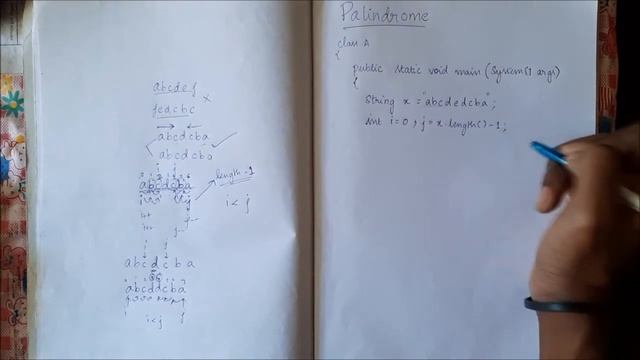 abcdef
fedcbc
abcdcba
abcdcba
i j
abcdcba
length-1
i < j
i++
j--
i j
abcdcba
abcddcba
i j
i<j
Palindrome
class A
{
public static void main (System[] args)
{
String x = "abcdedcba";
int i=0, j = x.length()-1;